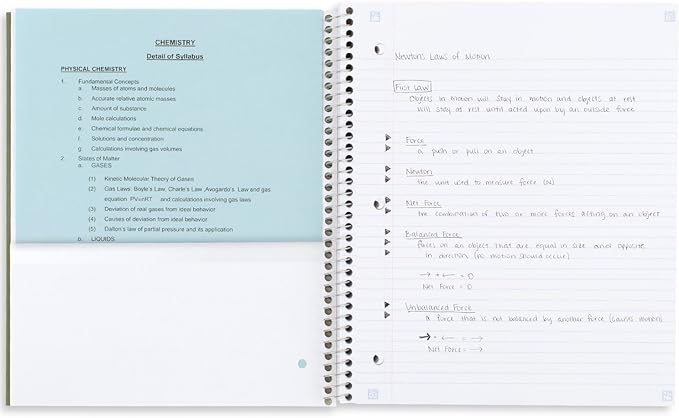 CHEMISTRY
Detail of Syllabus
PHYSICAL CHEMISTRY
1. Fundamental Concepts
a. Masses of atoms and molecules
b. Accurate relative atomic masses
c. Amount of substance
d. Mole calculations
e. Chemical formulae and chemical equations
f. Solutions and concentration
g. Calculations involving gas volumes
2. States of Matter
a. GASES
(1) Kinetic Molecular Theory of Gases
(2) Gas Laws: Boyle's Law, Charle's Law ,Avogardo's. Law and gas
equation PV=nRT and calculations involving gas laws
(3) Deviation of real gases from ideal behavior
(4) Causes of deviation from ideal behavior
(5) Dalton's law of partial pressure and its application
b. LIQUIDS
Newton's Laws of Motion
First Law
Objects in motion will stay in motion and objects at rest
will stay at rest until acted upon by an outside force
Force
a push or pull on an object
Newton
the unit used to measure force (N)
Net Force
the combination of two or more forces acting on an object
Balanced Force
forces on an object that are equal in size and opposite
in direction (no motion should occur)
→ + ← = 0
Net Force = 0
Unbalanced Force
a force that is not balanced by another force (causes motion)
→ + ← = →
Net Force = →